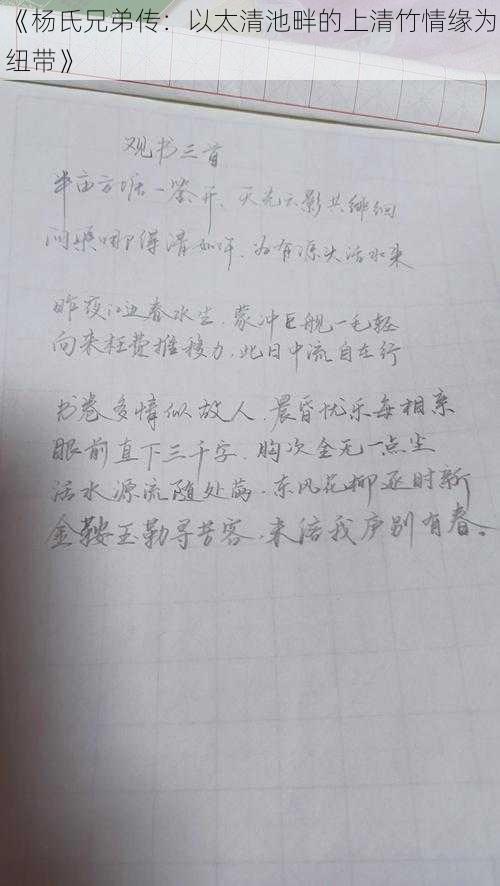 《杨氏兄弟传：以太清池畔的上清竹情缘为
纽带》
观书三首
半亩方塘一鉴开、天光云影共徘徊
问渠哪得清如许、为有源头活水来
昨夜江边春水生、蒙冲巨舰一毛轻
向来枉费推移力、此日中流自在行
书卷多情似故人、晨昏忧乐每相亲
眼前直下三千字、胸次全无一点尘
活水源流随处满、东风花柳逐时新
金鞍玉勒寻芳客、未信我庐别有春。